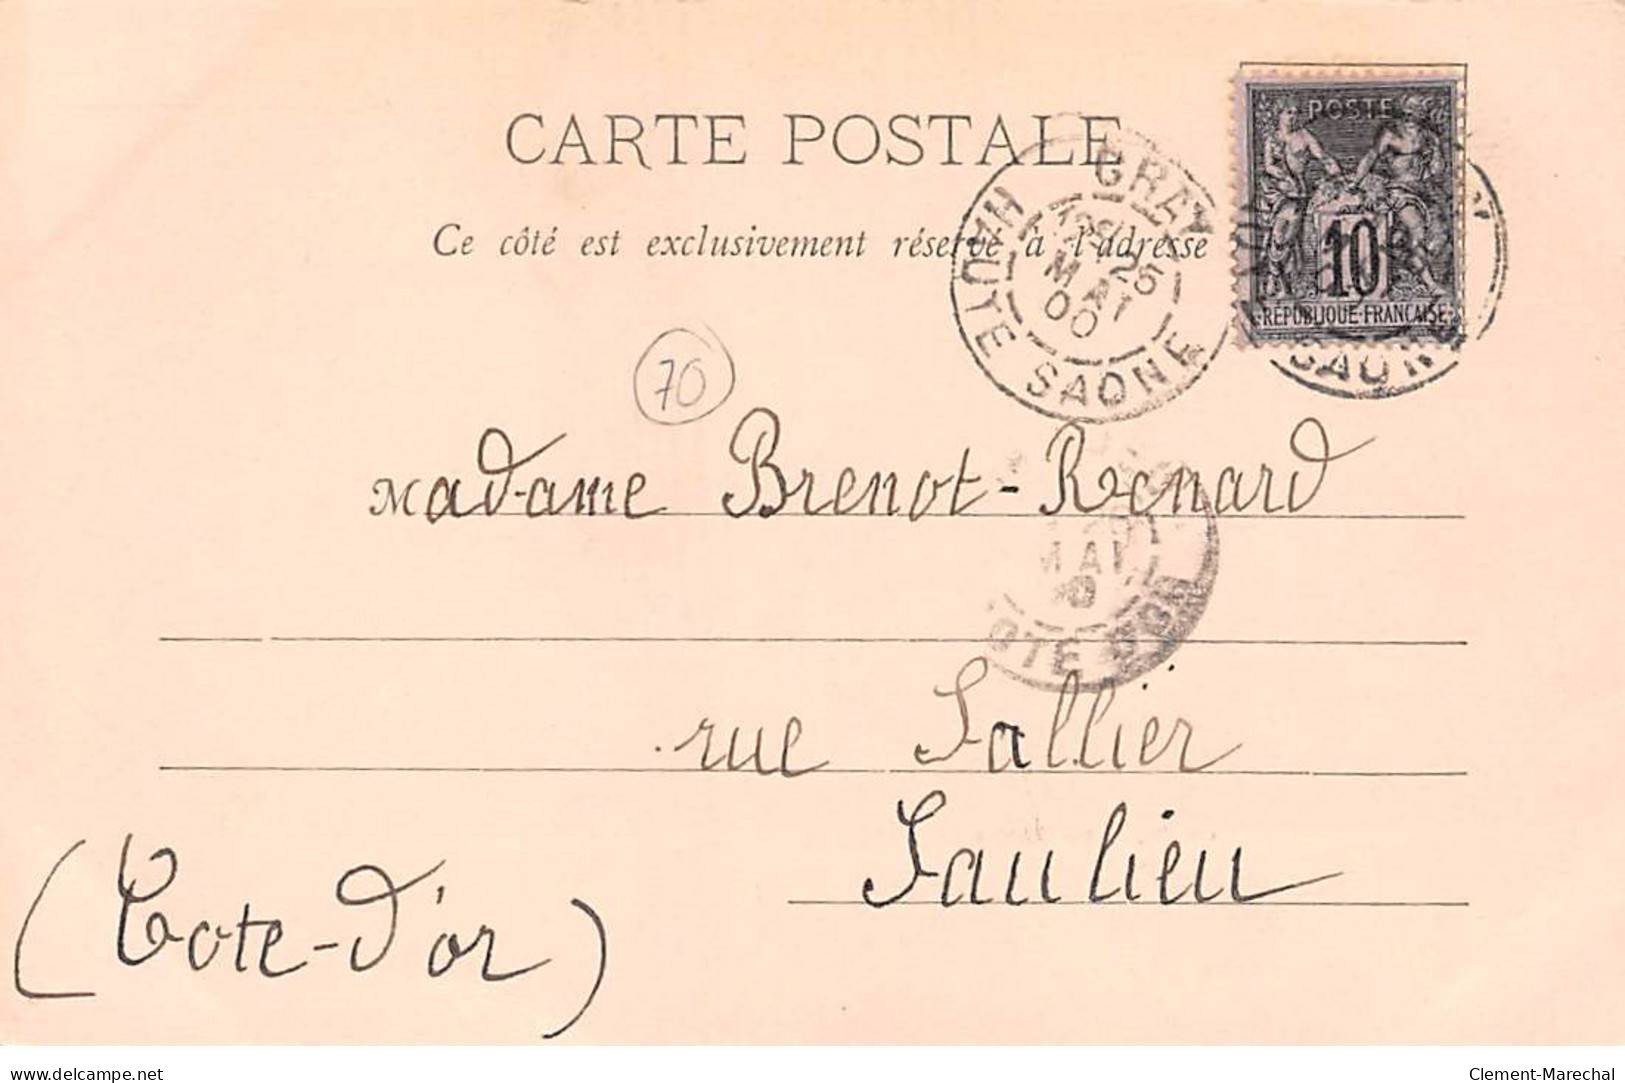 CARTE POSTALE
Ce côté est exclusivement réservé à l'adresse
GRAY
25
MAI
00
HAUTE SAONE
POSTE
10
RÉPUBLIQUE FRANÇAISE
SAONE
70
Madame Brenot-Renard
MAI
OTE D'OR
rue Sallier
Saulieu
(Cote-d'or)
delcampe.net
Clement-Marechal